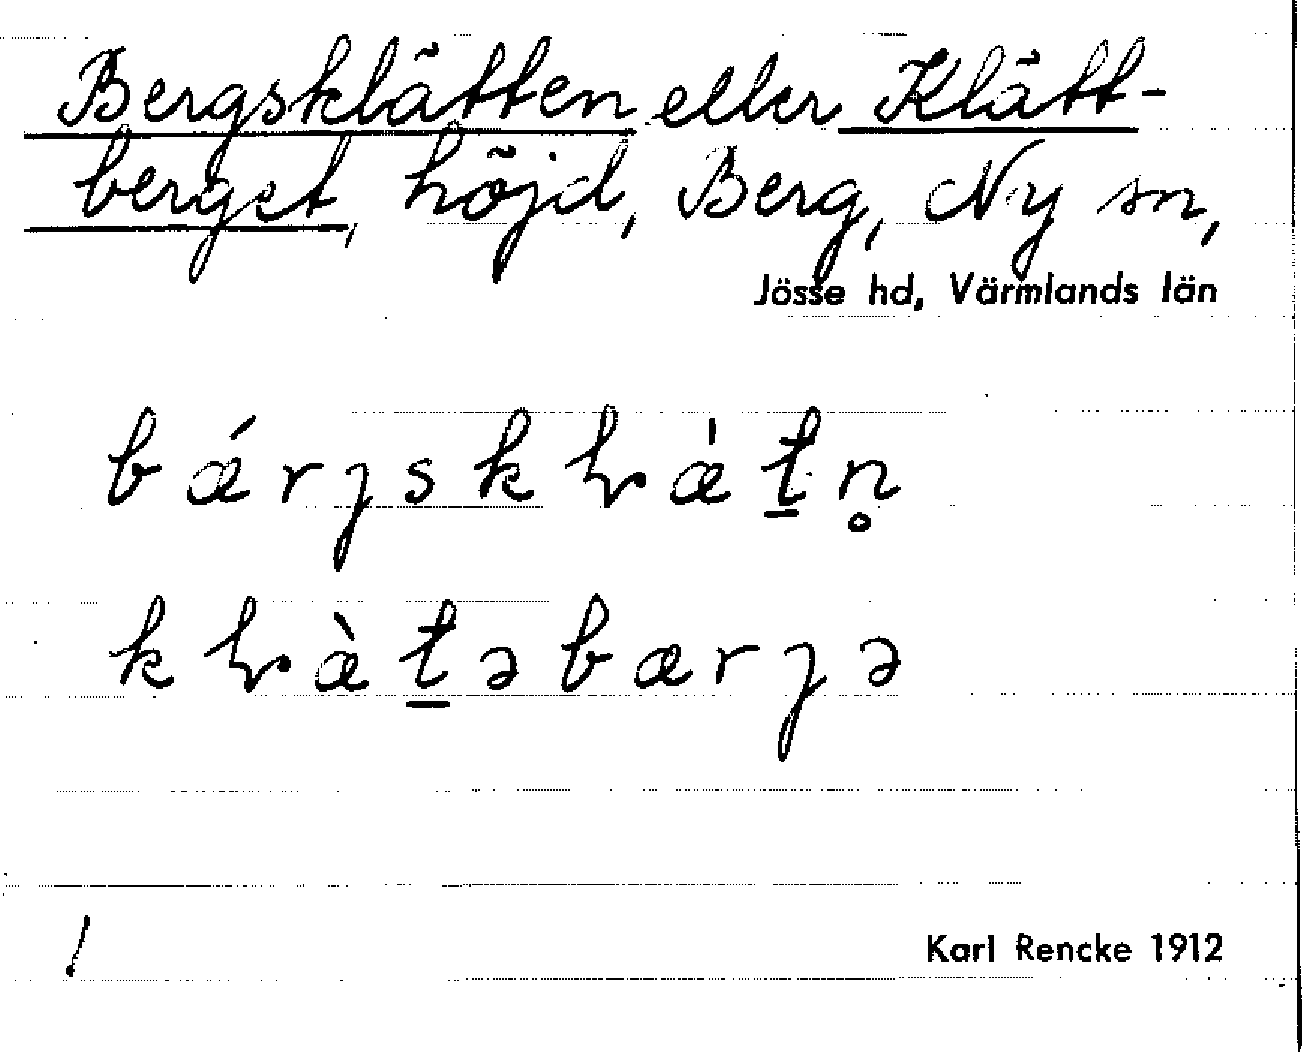 Bergsklätten eller Klätt-
berget, höjd, Berg, Ny sn,
Jösse hd, Värmlands län
bǽrȷskɫæ̀t̲n̥
kɫæ̀t̲əbærȷə
/
Karl Rencke 1912